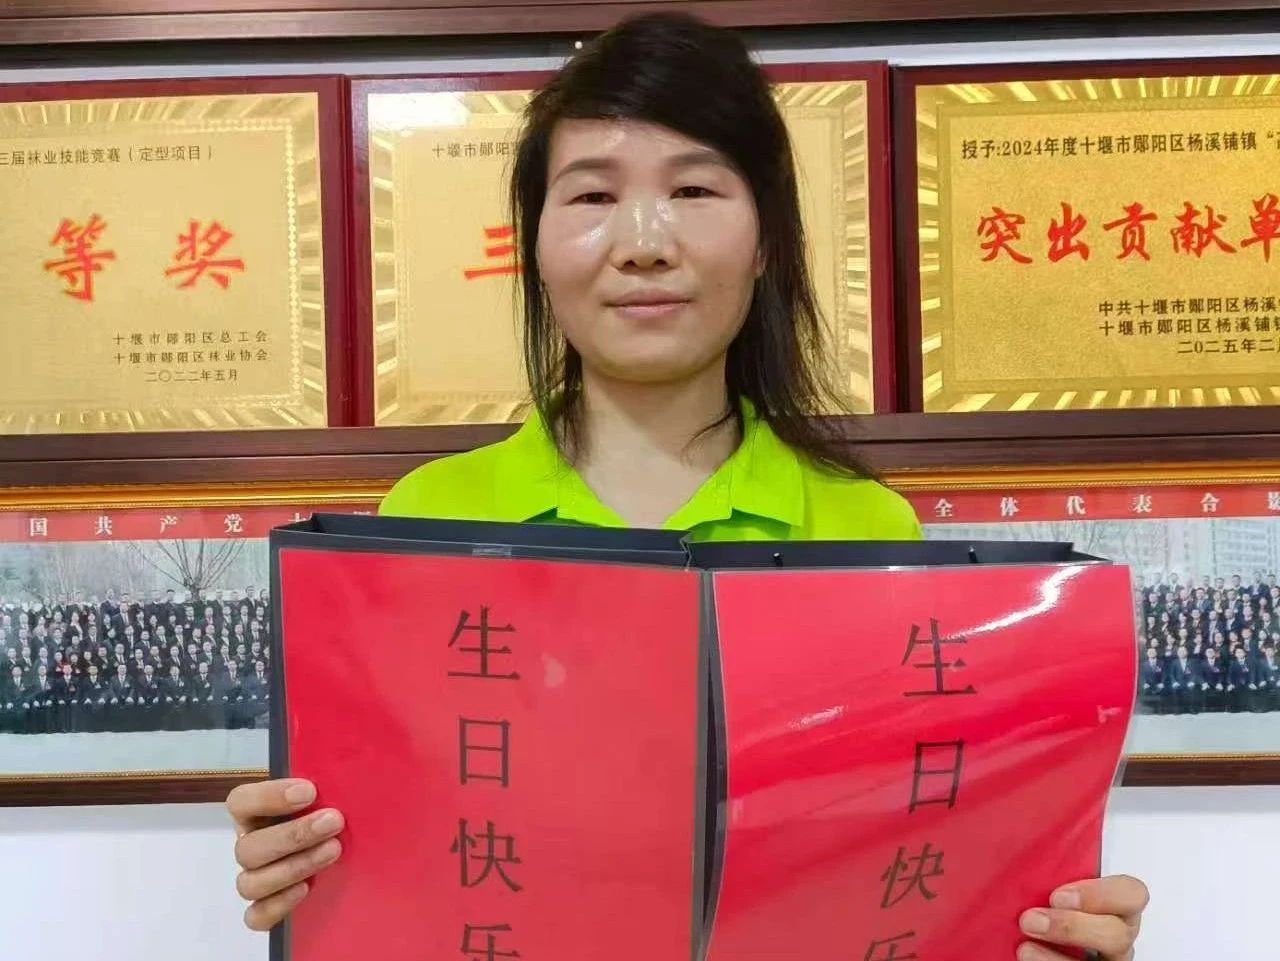 三届袜业技能竞赛（定型项目）
等奖
十堰市郧阳区总工会
十堰市郧阳区袜业协会
二〇二二年五月
十堰市郧阳
三
授予:2024年度十堰市郧阳区杨溪铺镇“
突出贡献单
中共十堰市郧阳区杨溪
十堰市郧阳区杨溪铺镇
二〇二五年二月
国共产党十堰
全体代表合影
生日快乐
生日快乐